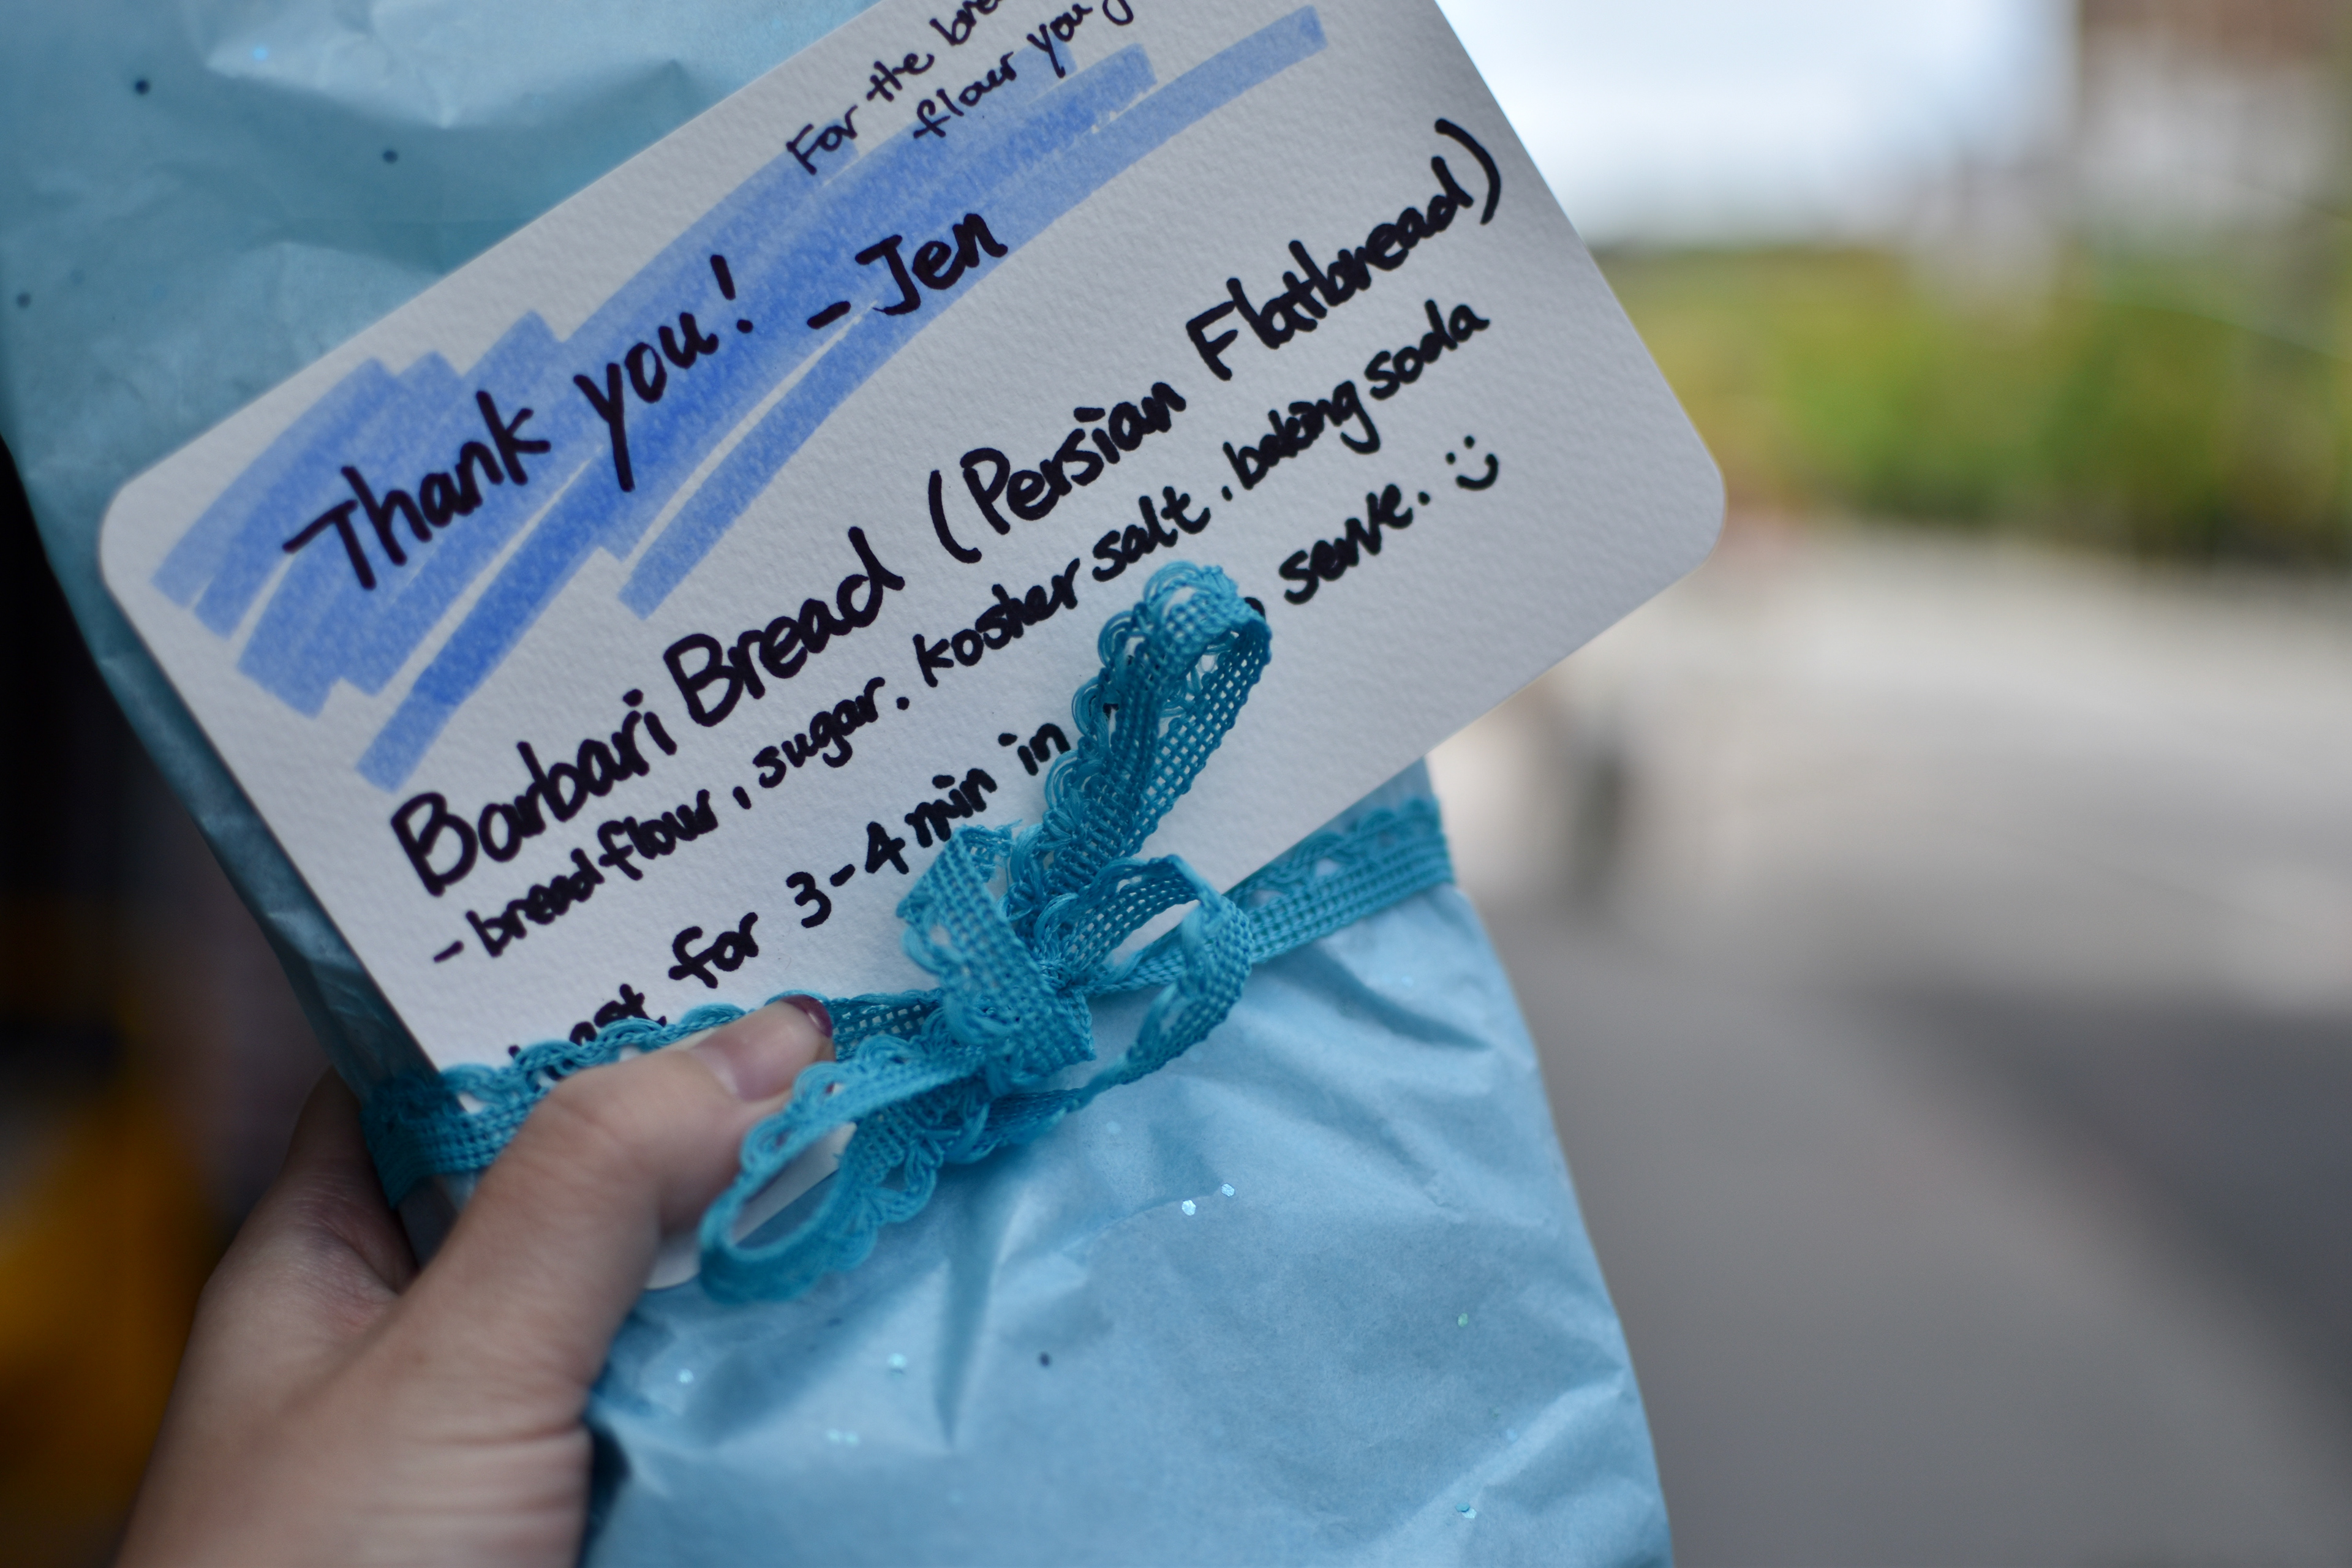 For the
flour you
Thank you! - Jen
Barbari Bread (Persian Flatbread)
- bread flour, sugar, kosher salt, baking soda
for 3-4 min in serve. :)